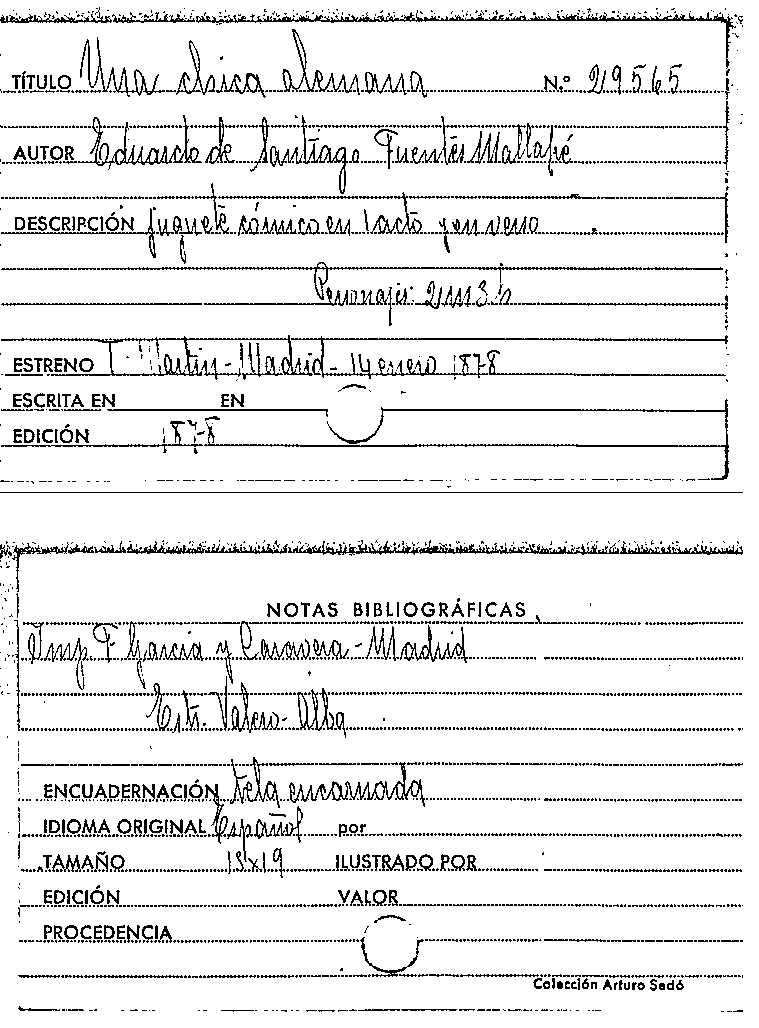 TÍTULO Una chica alemana N.º 29565
AUTOR Eduardo de Santiago Fuentes Mallafré
DESCRIPCIÓN juguete cómico en 1 acto y en verso
Personajes: 2 m 3 h
ESTRENO T. Martin - Madrid - 14 enero 1878
ESCRITA EN EN
EDICIÓN 1878
NOTAS BIBLIOGRÁFICAS
Imp. F García y Caravera - Madrid
Estr. Valero - Alba
ENCUADERNACIÓN tela encarnada
IDIOMA ORIGINAL Español por
TAMAÑO 13x19 ILUSTRADO POR
EDICIÓN VALOR
PROCEDENCIA
Colección Arturo Sedó